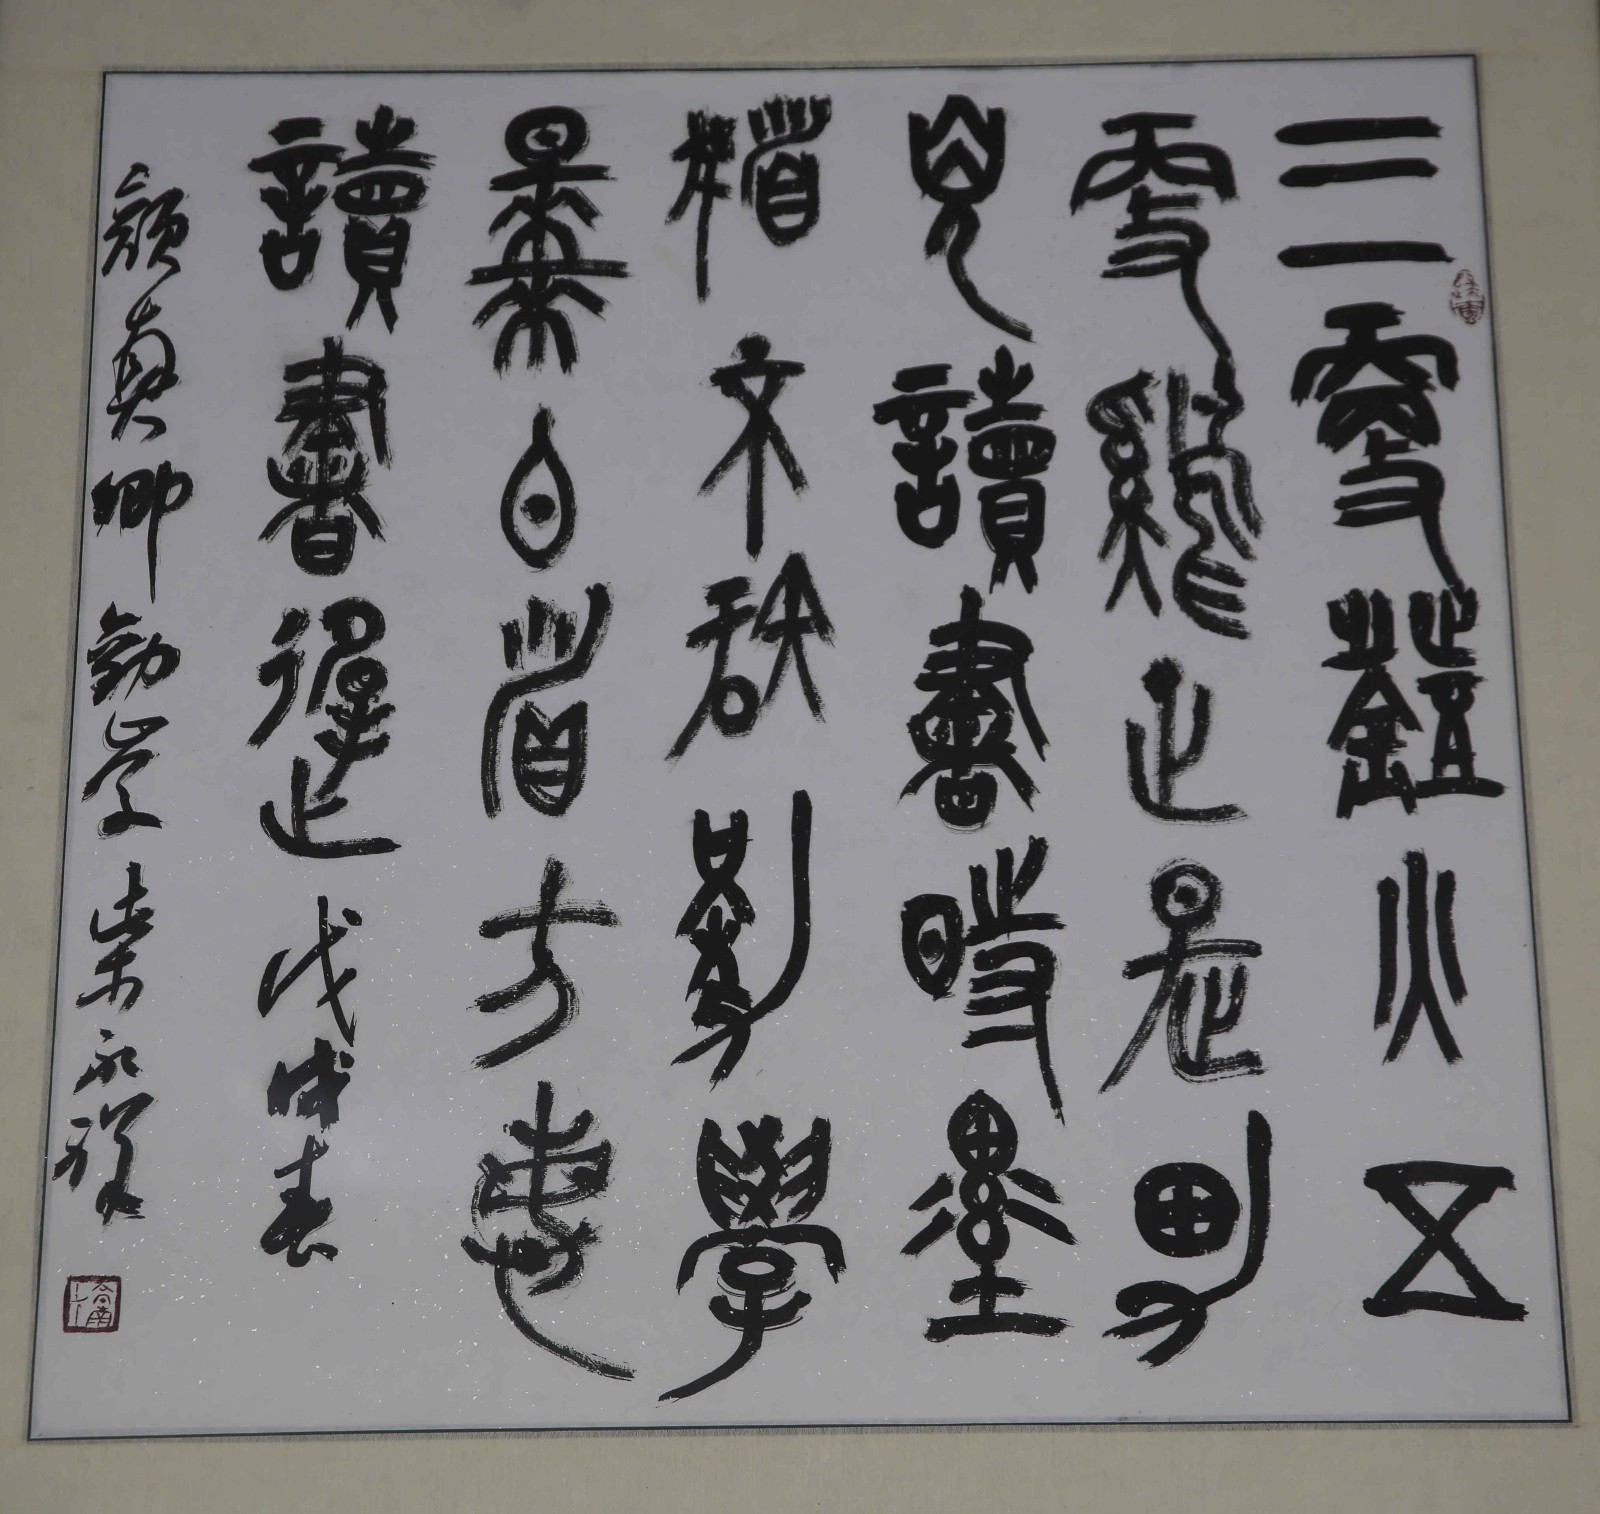 三更燈火五
更雞正是男
兒讀書時黑
髮不知勤學
早白首方悔
讀書遲 戊戌春
顏真卿勸學 柴永